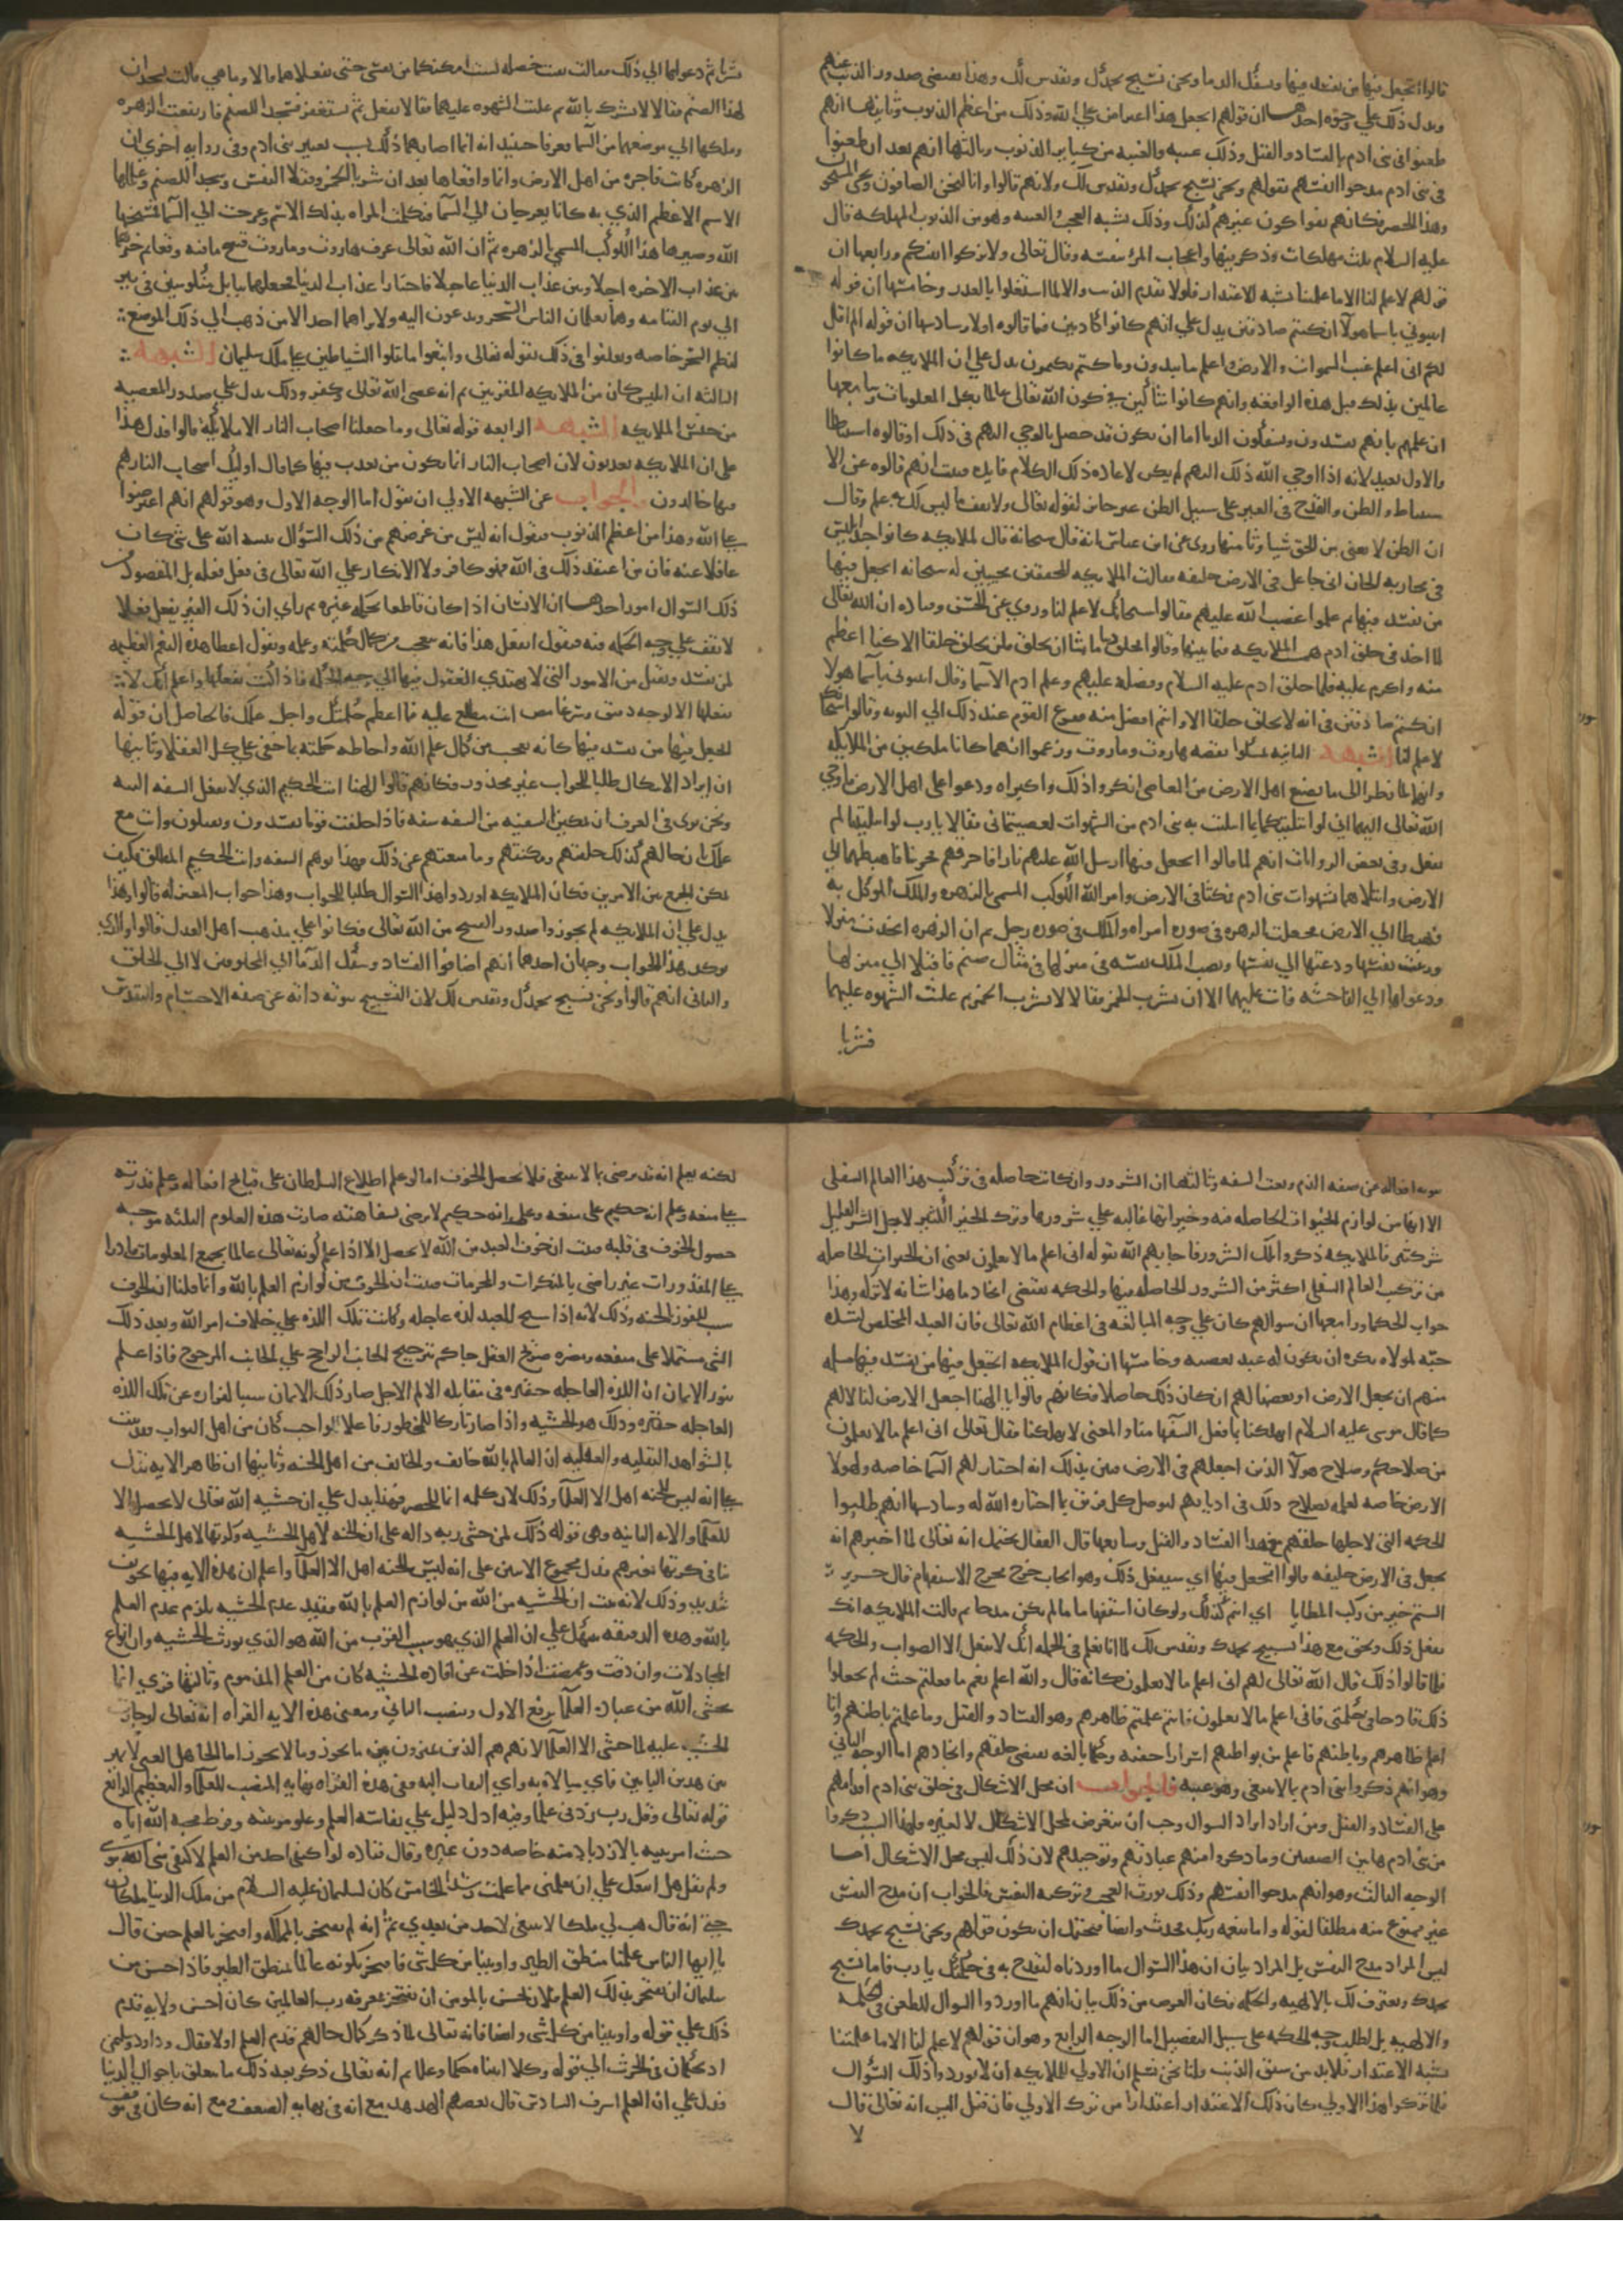 قالوا اتجعل فيها من يفسد فيها ويسفك الدما ونحن نسبح بحمدك ونقدس لك وهذا يقتضي صدور الذنب عنهم
ويدل ذلك علي وجوه احدها ان قولهم اتجعل هذا اعتراض علي الله وذلك من اعظم الذنوب وثانيها انهم
طعنوا في بني ادم بالفساد والقتل وذلك غيبه والغيبه من كباير الذنوب وثالثها انهم بعد ان طعنوا
في بني ادم مدحوا انفسهم بقولهم ونحن نسبح بحمدك ونقدس لك ولانهم قالوا وانا لنحن الصافون وانا لنحن المسبحون
وهذا للحصر فكانهم نفوا كون غيرهم كذلك وذلك يشبه العجب والغيبه وهو من الذنوب المهلكه قال
عليه السلام ثلث مهلكات وذكر فيها واعجاب المرء بنفسه وقال تعالى ولا تزكوا انفسكم ورابعها ان
قولهم لا علم لنا الا ما علمتنا يشبه الاعتذار فلولا تقدم الذنب والا لما اشتغلوا بالعذر وخامسها ان قوله
انبيوني باسما هولا ان كنتم صادقين يدل علي انهم كانوا كاذبين فيما قالوه اولا وسادسها ان قوله الم اقل
لكم اني اعلم غيب السموات والارض واعلم ما تبدون وما كنتم تكتمون يدل علي ان الملايكه ما كانوا
عالمين بذلك قبل هذه الواقعه وانهم كانوا شاكين في كون الله تعالى عالما بكل المعلومات وسابعها
ان علمهم بانهم يفسدون ويسفكون الدما اما ان يكون قد حصل بالوحي اليهم في ذلك او قالوه استنباطا
والاول بعيد لانه اذا اوحي الله ذلك اليهم لم يكن لاعاده ذلك الكلام فايده فثبت انهم قالوه عن الا
ستنباط والظن والقدح في الغير على سبيل الظن غير جايز لقوله تعالى ولا تقف ما ليس لك به علم وقال
ان الظن لا يغني من الحق شيا وثامنها روى عن ابن عباس انه قال سبحانه قال للملايكه كانوا جند ابليس
في محاربه الجان اني جاعل في الارض خليفه فقالت الملايكه للحق مجيبين له سبحانه اتجعل فيها
من يفسد فيها ثم علموا غضب الله عليهم فقالوا سبحانك لا علم لنا وروي عن الحسن وقتاده ان الله تعالى
لما اخذ في خلق ادم همست الملايكه فيما بينها وقالوا ليخلق ربنا ما شا ان يخلق فلن يخلق خلقا الا كنا اعظم
منه واكرم عليه فلما خلق ادم عليه السلام وفضله عليهم وعلم ادم الاسما وقال انبيوني باسما هولا
ان كنتم صادقين في انه لا يخلق خلقا الا وانتم افضل منه ففزع القوم عند ذلك الي التوبه وقالوا سبحانك
لا علم لنا الشبهه الثانيه تمسكوا بقصه هاروت وماروت وزعموا انهما كانا ملكين من الملايكه
وانهما لما نظرا الى ما يصنع اهل الارض من المعاصي انكروا ذلك واكبراه ودعوا على اهل الارض فاوحي
الله تعالى اليهما اني لو ابتليتكما بما ابتليت به بني ادم من الشهوات لعصيتماني فقالا يا رب لو ابتليتنا لم
نفعل وفي بعض الروايات انهم لما قالوا اتجعل فيها ارسل الله عليهم نارا فاحرقتهم فجربنا فاهبطهما الي
الارض وابتلاهما بشهوات بني ادم فمكثا في الارض وامر الله الكوكب المسمي بالزهره والملك الموكل به
فهبطا الي الارض فجعلت الزهره في صوره امراه والملك في صوره رجل ثم ان الزهره اتخذت منزلا
وزينت نفسها ودعتهما الي نفسها ونصب الملك نفسه في منزلها في مثال صنم فاقبلا الي منزلها
ودعواها الي الفاحشه فابت عليهما الا ان يشربا الخمر فقالا لا نشرب الخمر ثم غلبت الشهوه عليهما
فشربا
شربا ثم دعواها الي ذلك فقالت بقيت خصله لست امكنكما من نفسي حتى تفعلاها قالا وما هي قالت تسجدان
لهذا الصنم فقالا لا نشرك بالله ثم غلبت الشهوه عليهما فقالا نفعل ثم نستغفر فسجدا للصنم فارتفعت الزهره
وملكها الي موضعهما من السما فعرفا حينيذ انه انما اصابهما ذلك بسبب تعيير بني ادم وفي روايه اخري ان
الزهره كانت فاجره من اهل الارض وانما واقعاها بعد ان شربا الخمر وقتلا النفس وسجدا للصنم وعلماها
الاسم الاعظم الذي به كانا يعرجان الي السما فتكلمت المراه بذلك الاسم وعرجت الي السما فمسخها
الله وصيرها هذا الكوكب المسمي بالزهره ثم ان الله تعالى عرف هاروت وماروت قبيح ما فيه وقعا ثم خيرهما
بين عذاب الاخره اجلا وبين عذاب الدنيا عاجلا فاختارا عذاب الدنيا فجعلهما ببابل منكوسين في بير
الي يوم القيامه وهما يعلمان الناس السحر ويدعون اليه ولا يراهما احد الا من ذهب الي ذلك الموضع
لتعلم السحر خاصه وتعلقوا في ذلك بقوله تعالى واتبعوا ما تتلوا الشياطين على ملك سليمان الشبهه
الثالثه ان ابليس كان من الملايكه المقربين ثم انه عصى الله تعالى وكفر وذلك يدل علي صدور المعصيه
من جنس الملايكه الشبهه الرابعه قوله تعالى وما جعلنا اصحاب النار الا ملايكه قالوا فدل هذا
على ان الملايكه يعذبون لان اصحاب النار انما يكون من يعذب فيها كما قال اوليك اصحاب النار هم
فيها خالدون والجواب عن الشبهه الاولي ان نقول اما الوجه الاول وهو قولهم انهم اعترضوا
على الله وهذا من اعظم الذنوب فنقول انه ليس من غرضهم من ذلك السوال تنبيه الله على شي كان
غافلا عنه فان من اعتقد ذلك في الله فهو كافر ولا الانكار علي الله تعالى في فعل فعله بل المقصود من
ذلك السوال امور احدها ان الانسان اذا كان قاطعا بحكمه غيره ثم راي ان ذلك الغير يفعل فعلا
لا يقف علي وجه الحكمه فيه فيقول اتفعل هذا فانه يتعجب من كمال حكمته وعلمه ويقول اعطا هذه النعم العظيمه
لمن يفسد ويقتل من الامور التي لا يهتدي العقول فيها الي وجه الحكمه فاذا كنت تفعلها واعلم انك لا
تفعلها الا لوجه دقيق وسر غامض انت مطلع عليه فما اعظم حكمتك واجل علمك فالحاصل ان قوله
اتجعل فيها من يفسد فيها كانه تعجب من كمال علم الله واحاطه حكمته بما خفي علي كل العقلا وثانيها
ان ايراد الاشكال طلبا للجواب غير محذور فكانهم قالوا الهنا انت الحكيم الذي لا تفعل السفه البته
ونحن نرى في العرف ان تمكين السفيه من السفه سفه فاذا خلقت قوما يفسدون ويقتلون وانت مع
علمك ان حالهم كذلك خلقتهم ومكنتهم وما منعتهم عن ذلك فهذا يوهم السفه وانت الحكيم المطلق فكيف
يمكن الجمع بين الامرين فكان الملايكه اوردوا هذا السوال طلبا للجواب وهذا جواب المعتزله قالوا وهذا
يدل علي ان الملايكه لم يجوزوا صدور القبيح من الله تعالى فكانوا علي مذهب اهل العدل قالوا والذي
يوكد هذا الجواب وجهان احدهما انهم اضافوا الفساد وسفك الدما الي المخلوقين لا الي الخالق
والثاني انهم قالوا ونحن نسبح بحمدك ونقدس لك لان التسبيح تنزيه ذاته عن صفه الاجسام والتقديس
تنزيه افعاله عن صفه الذم ونعت السفه وثالثها ان الشرور وان كانت حاصله في تركيب هذا العالم السفلي
الا انها من لوازم الخيرات الحاصله فيه وخيراتها غالبه علي شرورها وترك الخير الكثير لاجل الشر القليل
شر كثير فالملايكه ذكروا تلك الشرور فاجابهم الله بقوله اني اعلم ما لا تعلمون يعني ان الخيرات الحاصله
من تركيب العالم السفلي اكثر من الشرور الحاصله فيها والحكمه تقتضي ايجاد ما هذا شانه لا تركه وهذا
جواب الحكما ورابعها ان سوالهم كان علي وجه المبالغه في اعظام الله تعالى فان العبد المخلص لشده
حبه لمولاه يكره ان يكون له عبد يعصيه وخامسها ان قول الملايكه اتجعل فيها من يفسد فيها مسله
منهم ان يجعل الارض او بعضها لهم ان كان ذلك حاصلا فكانهم قالوا يا الهنا اجعل الارض لنا لا لهم
كما قال موسى عليه السلام اتهلكنا بما فعل السفها منا والمعني لا تهلكنا فقال تعالى اني اعلم ما لا تعلمون
من صلاحكم وصلاح هولا الذين اجعلهم في الارض فبين بذلك انه اختار لهم السما خاصه ولهولا
الارض خاصه لعلمه بصلاح ذلك في اديانهم ليرضي كل فريق بما اختاره الله له وسادسها انهم طلبوا
الحكمه التي لاجلها خلقهم مع هذا الفساد والقتل وسابعها قال القفال يحتمل انه تعالى لما اخبرهم انه
يجعل في الارض خليفه قالوا اتجعل فيها اي ستفعل ذلك وهو ايجاب خرج مخرج الاستفهام قال جرير
الستم خير من ركب المطايا اي انتم كذلك ولو كان استفهاما لم يكن مدحا ثم قالت الملايكه انك
تفعل ذلك ونحن مع هذا نسبح بحمدك ونقدس لك لما انا نعلم في الجمله انك لا تفعل الا الصواب والحكمه
فلما قالوا ذلك قال الله تعالى لهم اني اعلم ما لا تعلمون كانه قال والله اعلم نعم ما فعلتم حيث لم تجعلوا
ذلك قادحا في حكمتي فاني اعلم ما لا تعلمون فانتم علمتم ظاهرهم وهو الفساد والقتل وما علمتم باطنهم وانا
اعلم ظاهرهم وباطنهم فاعلم من بواطنهم اسرارا خفيه وحكما بالغه تقتضي خلقهم وايجادهم اما الوجه الثاني
وهو انهم ذكروا بني ادم بما لا ينبغي وهو غيبه فالجواب ان محل الاشكال في خلق بني ادم اقدامهم
على الفساد والقتل ومن اراد ايراد السوال وجب ان يتعرض لمحل الاشكال لا لغيره فلهذا السبب ذكروا
من بني ادم هاتين الصفتين وما ذكروا منهم عبادتهم وتوحيدهم لان ذلك ليس محل الاشكال اما
الوجه الثالث وهو انهم مدحوا انفسهم وذلك يورث العجب وتزكيه النفس فالجواب ان مدح النفس
غير ممنوع منه مطلقا لقوله واما بنعمه ربك فحدث وايضا فيحتمل ان يكون قولهم ونحن نسبح بحمدك
ليس المراد مدح النفس بل المراد بيان ان هذا السوال ما اوردناه لنقدح به في حكمتك يا رب فانا نسبح
بحمدك ونعترف لك بالالهيه والحكمه فكان الغرض من ذلك بيان انهم ما اوردوا السوال للطعن في الحكمه
والالهيه بل لطلب وجه الحكمه على سبيل التفصيل اما الوجه الرابع وهو ان قولهم لا علم لنا الا ما علمتنا
يشبه الاعتذار فلا بد من سبق الذنب قلنا نحن نسلم ان الاولي للملايكه ان لا يوردوا ذلك السوال
فلما تركوا هذا الاولي كان ذلك الاعتذار اعتذارا من ترك الاولي فان قيل اليس انه تعالى قال
لا
لكنه يعلم انه قد رضي بما لا ينبغي فلا يحصل الخوف اما لو علم اطلاع السلطان على قبايح افعاله وعلم قدرته
على منعه وعلم انه حكيم علي منعه وعلم انه حكيم لا يرضى بسفاهته صارت هذه العلوم الثلثه موجبه
حصول الخوف في قلبه فثبت ان خوف العبد من الله لا يحصل الا اذا علم كونه تعالى عالما بجميع المعلومات قادرا
على المقدورات غير راضي بالمنكرات والمحرمات فثبت ان الخوف من لوازم العلم بالله وانما قلنا ان الخوف
سبب للفوز بالجنه وذلك لانه اذا سنح للعبد لذه عاجله وكانت تلك اللذه علي خلاف امر الله وبعد ذلك
الشي مشتملا على منفعه ومضره فصريح العقل حاكم بترجيح الجانب الراجح علي الجانب المرجوح فاذا علم
بنور الايمان ان اللذه العاجله حقيره في مقابله الالم الاجل صار ذلك الايمان سببا لفراره عن تلك اللذه
العاجله حقيره وذلك هو الخشيه واذا صار تاركا للمحظور فاعلا للواجب كان من اهل الثواب وقد ثبت
بالشواهد النقليه والعقليه ان العالم بالله خايف والخايف من اهل الجنه وثانيها ان ظاهر الايه يدل
على انه ليس للجنه اهل الا العلما وذلك لان كلمه انما للحصر فهذا يدل علي ان خشيه الله تعالى لا يحصل الا
للعلما والايه الثانيه وهي قوله ذلك لمن خشي ربه داله على ان الجنه لاهل الخشيه وكونها لاهل الخشيه
ينافي كونها لغيرهم فدل مجموع الايتين على انه ليس للجنه اهل الا العلما واعلم ان هذه الايه فيها تخويف
شديد وذلك لانه ثبت ان الخشيه من الله من لوازم العلم بالله فعند عدم الخشيه يلزم عدم العلم
بالله وهذه الدقيقه تنبهك علي ان العلم الذي هو سبب القرب من الله هو الذي يورث الخشيه وان انواع
المجادلات وان دقت وغمضت اذا خلت عن افاده الخشيه كان من العلم المذموم وثالثها قري انما
يخشى الله من عباده العلما برفع الاول ونصب الثاني ومعنى هذه الايه القراه انه تعالى لو جازت
الخشيه عليه لما خشى الا العلما لانهم هم الذين يميزون بين ما يجوز وما لا يجوز اما الجاهل الغبي لا يميز
بين هذين البابين فاي مبالاه به واي التفات اليه ففي هذه القراه نهايه المنصب للعلما والتعظيم الرابع
قوله تعالى وقل رب زدني علما وفيه ادل دليل علي نفاسه العلم وعلو مرتبته وفرط محبه الله اياه
حيث امر نبيه بالازدياد منه خاصه دون غيره وقال قتاده لو اكتفى احد من العلم لاكتفى نبي الله موسى
ولم يقل هل اتبعك علي ان تعلمني مما علمت رشدا الخامس كان لسليمان عليه السلام من ملك الدنيا ما كان
حتى انه قال هب لي ملكا لا ينبغي لاحد من بعدي ثم انه لم يفتخر بالمملكه وافتخر بالعلم حين قال
يا ايها الناس علمنا منطق الطير واوتينا من كل شي فافتخر بكونه عالما بمنطق الطير فاذا حسن من
سليمان ان يفتخر بذلك العلم فلان يحسن بالمومن ان يفتخر بمعرفه رب العالمين كان احسن ولانه قدم
ذلك علي قوله واوتينا من كل شي وايضا فانه تعالى لما ذكر كمال حالهم قدم العلم اولا فقال وداود وسليمن
اذ يحكمان في الحرث الي قوله وكلا اتينا حكما وعلما ثم انه تعالى ذكر بعد ذلك ما يتعلق باحوال الدنيا
فدل علي ان العلم اشرف السادس قال بعضهم الهدهد مع انه في نهايه الضعف ومع انه كان في موقف